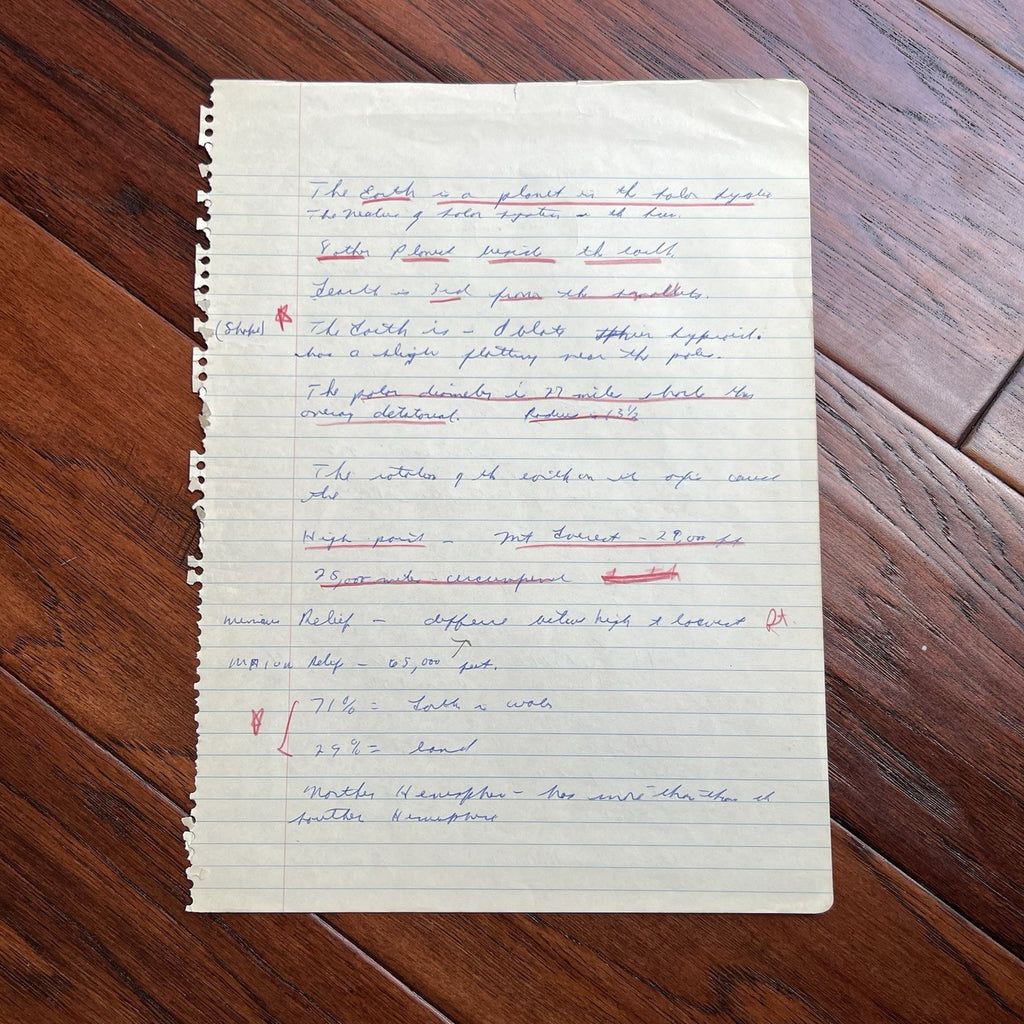 The Earth is a planet in the Solar System
The of Solar System is the Sun.
8 other Planet beside the earth
Earth is 3rd from the
(Shape) The Earth is - Oblate
has a sligh flatting near the poles.
The polar diameter is 27 miles shorter than
Radius is 13 1/2
The rotation of the earth on it axis cause
the
High point - Mt Everest - 29,000 ft
25,000 miles -
Relief - differe between high & lowest Pt.
Relief - 65,000 feet.
71% = Earth is water
29% = land
Norther Hemispher - has more than the
Souther Hemisphere